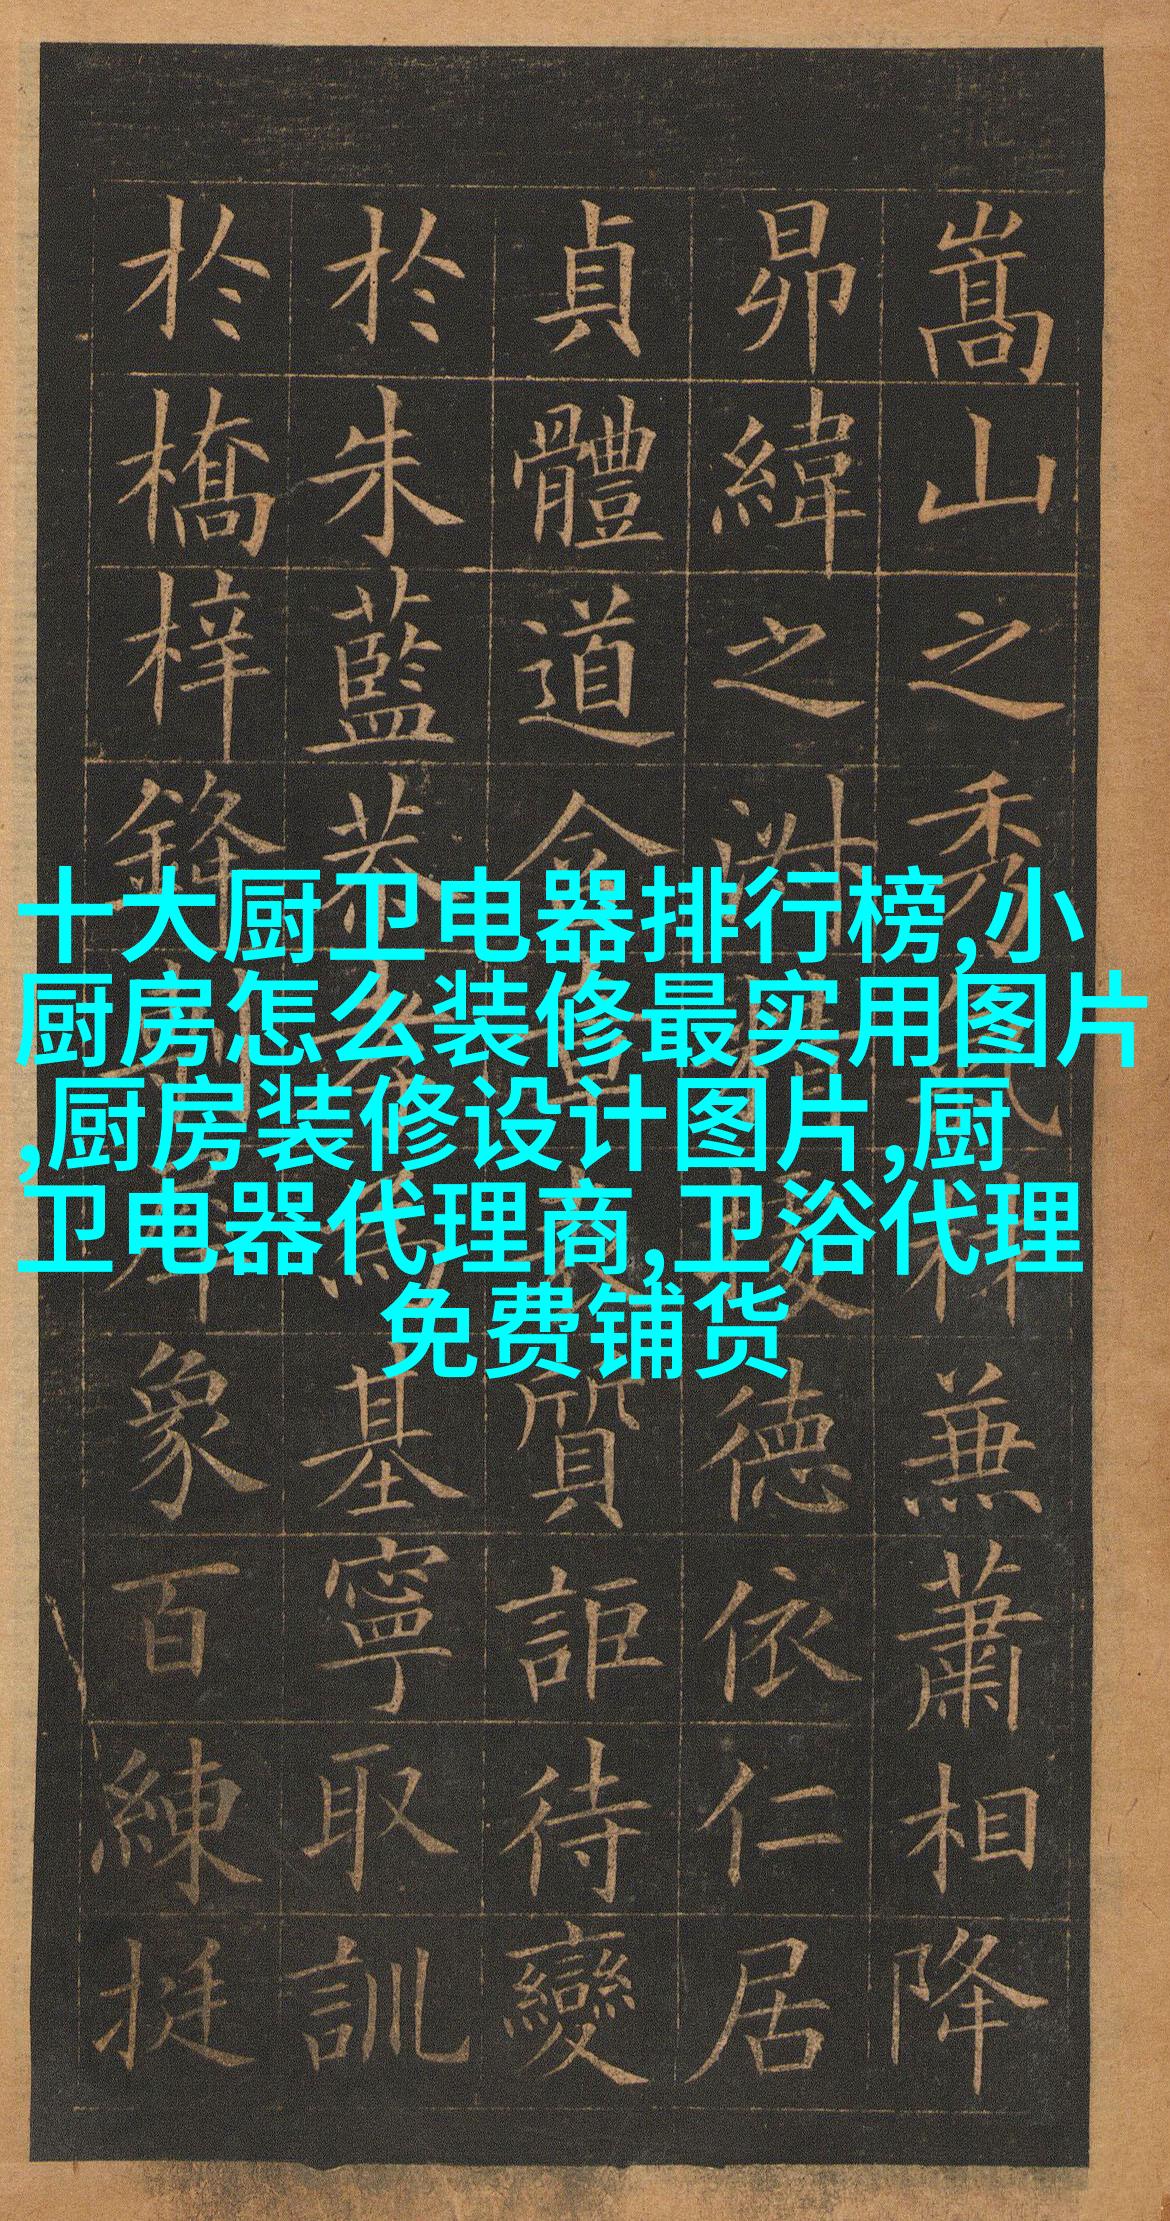 嵩山之秀氣材兼蕭相降
昴緯之淑精德依仁居
貞體道含章質詎待變
於朱藍恭孝為基寧取訓
於橋梓鋒象百練挺
十大厨卫电器排行榜,小
厨房怎么装修最实用图片
,厨房装修设计图片,厨
卫电器代理商,卫浴代理
免费铺货